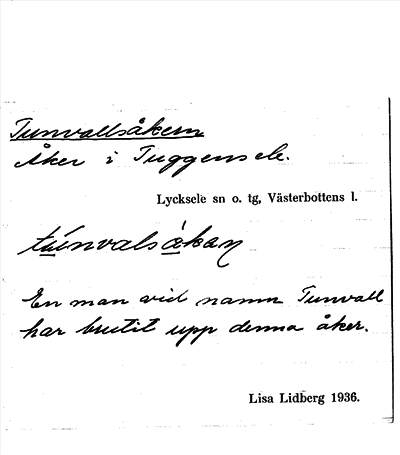 Tunvallsåkern
Åker i Tuggensele.
Lycksele sn o. tg, Västerbottens l.
túnvalsåkaɲ
En man vid namn Tunvall
har brutit upp denna åker.
Lisa Lidberg 1936.